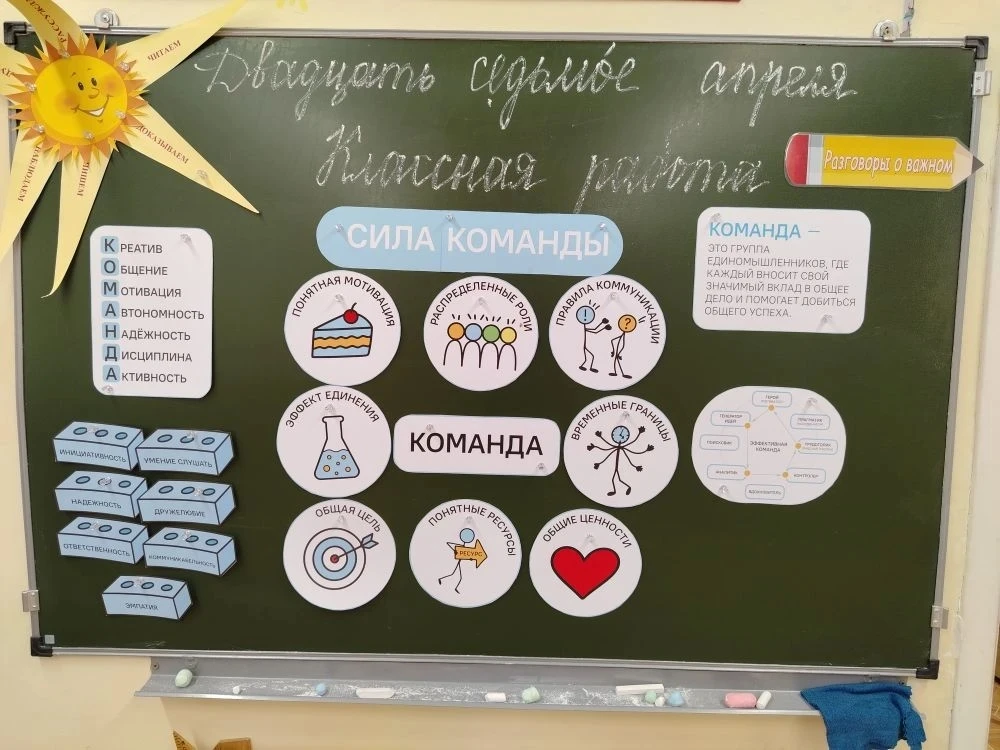 РАССУЖД
ЧИТАЕМ
ДОКАЗЫВАЕМ
ПИШЕМ
НАБЛЮДАЕМ
Двадцать седьмое апреля
Классная работа
Разговоры о важном
СИЛА КОМАНДЫ
КРЕАТИВ
ОБЩЕНИЕ
МОТИВАЦИЯ
АВТОНОМНОСТЬ
НАДЁЖНОСТЬ
ДИСЦИПЛИНА
АКТИВНОСТЬ
КОМАНДА –
ЭТО ГРУППА
ЕДИНОМЫШЛЕННИКОВ, ГДЕ
КАЖДЫЙ ВНОСИТ СВОЙ
ЗНАЧИМЫЙ ВКЛАД В ОБЩЕЕ
ДЕЛО И ПОМОГАЕТ ДОБИТЬСЯ
ОБЩЕГО УСПЕХА.
ПОНЯТНАЯ МОТИВАЦИЯ
РАСПРЕДЕЛЕННЫЕ РОЛИ
ПРАВИЛА КОММУНИКАЦИИ
ЭФФЕКТ ЕДИНЕНИЯ
КОМАНДА
ВРЕМЕННЫЕ ГРАНИЦЫ
ОБЩАЯ ЦЕЛЬ
ПОНЯТНЫЕ РЕСУРСЫ
РЕСУРС
ОБЩИЕ ЦЕННОСТИ
ИНИЦИАТИВНОСТЬ
УМЕНИЕ СЛУШАТЬ
НАДЕЖНОСТЬ
ДРУЖЕЛЮБИЕ
ОТВЕТСТВЕННОСТЬ
КОММУНИКАБЕЛЬНОСТЬ
ЭМПАТИЯ
ГЕРОЙ
ГЕНЕРАТОР
ИДЕЙ
ПРАГМАТИК
ПОИСКОВИК
ЭФФЕКТИВНАЯ
КОМАНДА
АНАЛИТИК
КОНТРОЛЕР
ВДОХНОВИТЕЛЬ